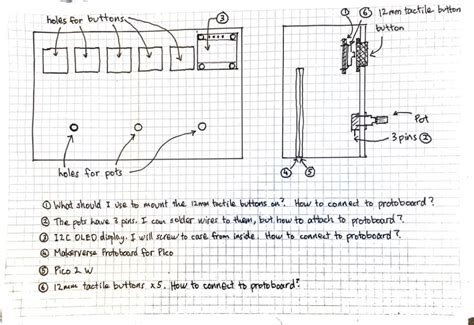 holes for buttons
③
① ⑥ 12mm tactile button
button
Pot
3 pins ②
④ ⑤
holes for pots
① What should I use to mount the 12mm tactile buttons on? How to connect to protoboard?
② The pots have 3 pins. I can solder wires to them, but how to attach to protoboard?
③ I2C OLED display. I will screw to case from inside. How to connect to protoboard?
④ Makerverse Protoboard for Pico
⑤ Pico 2 W
⑥ 12mm tactile buttons x5. How to connect to protoboard?